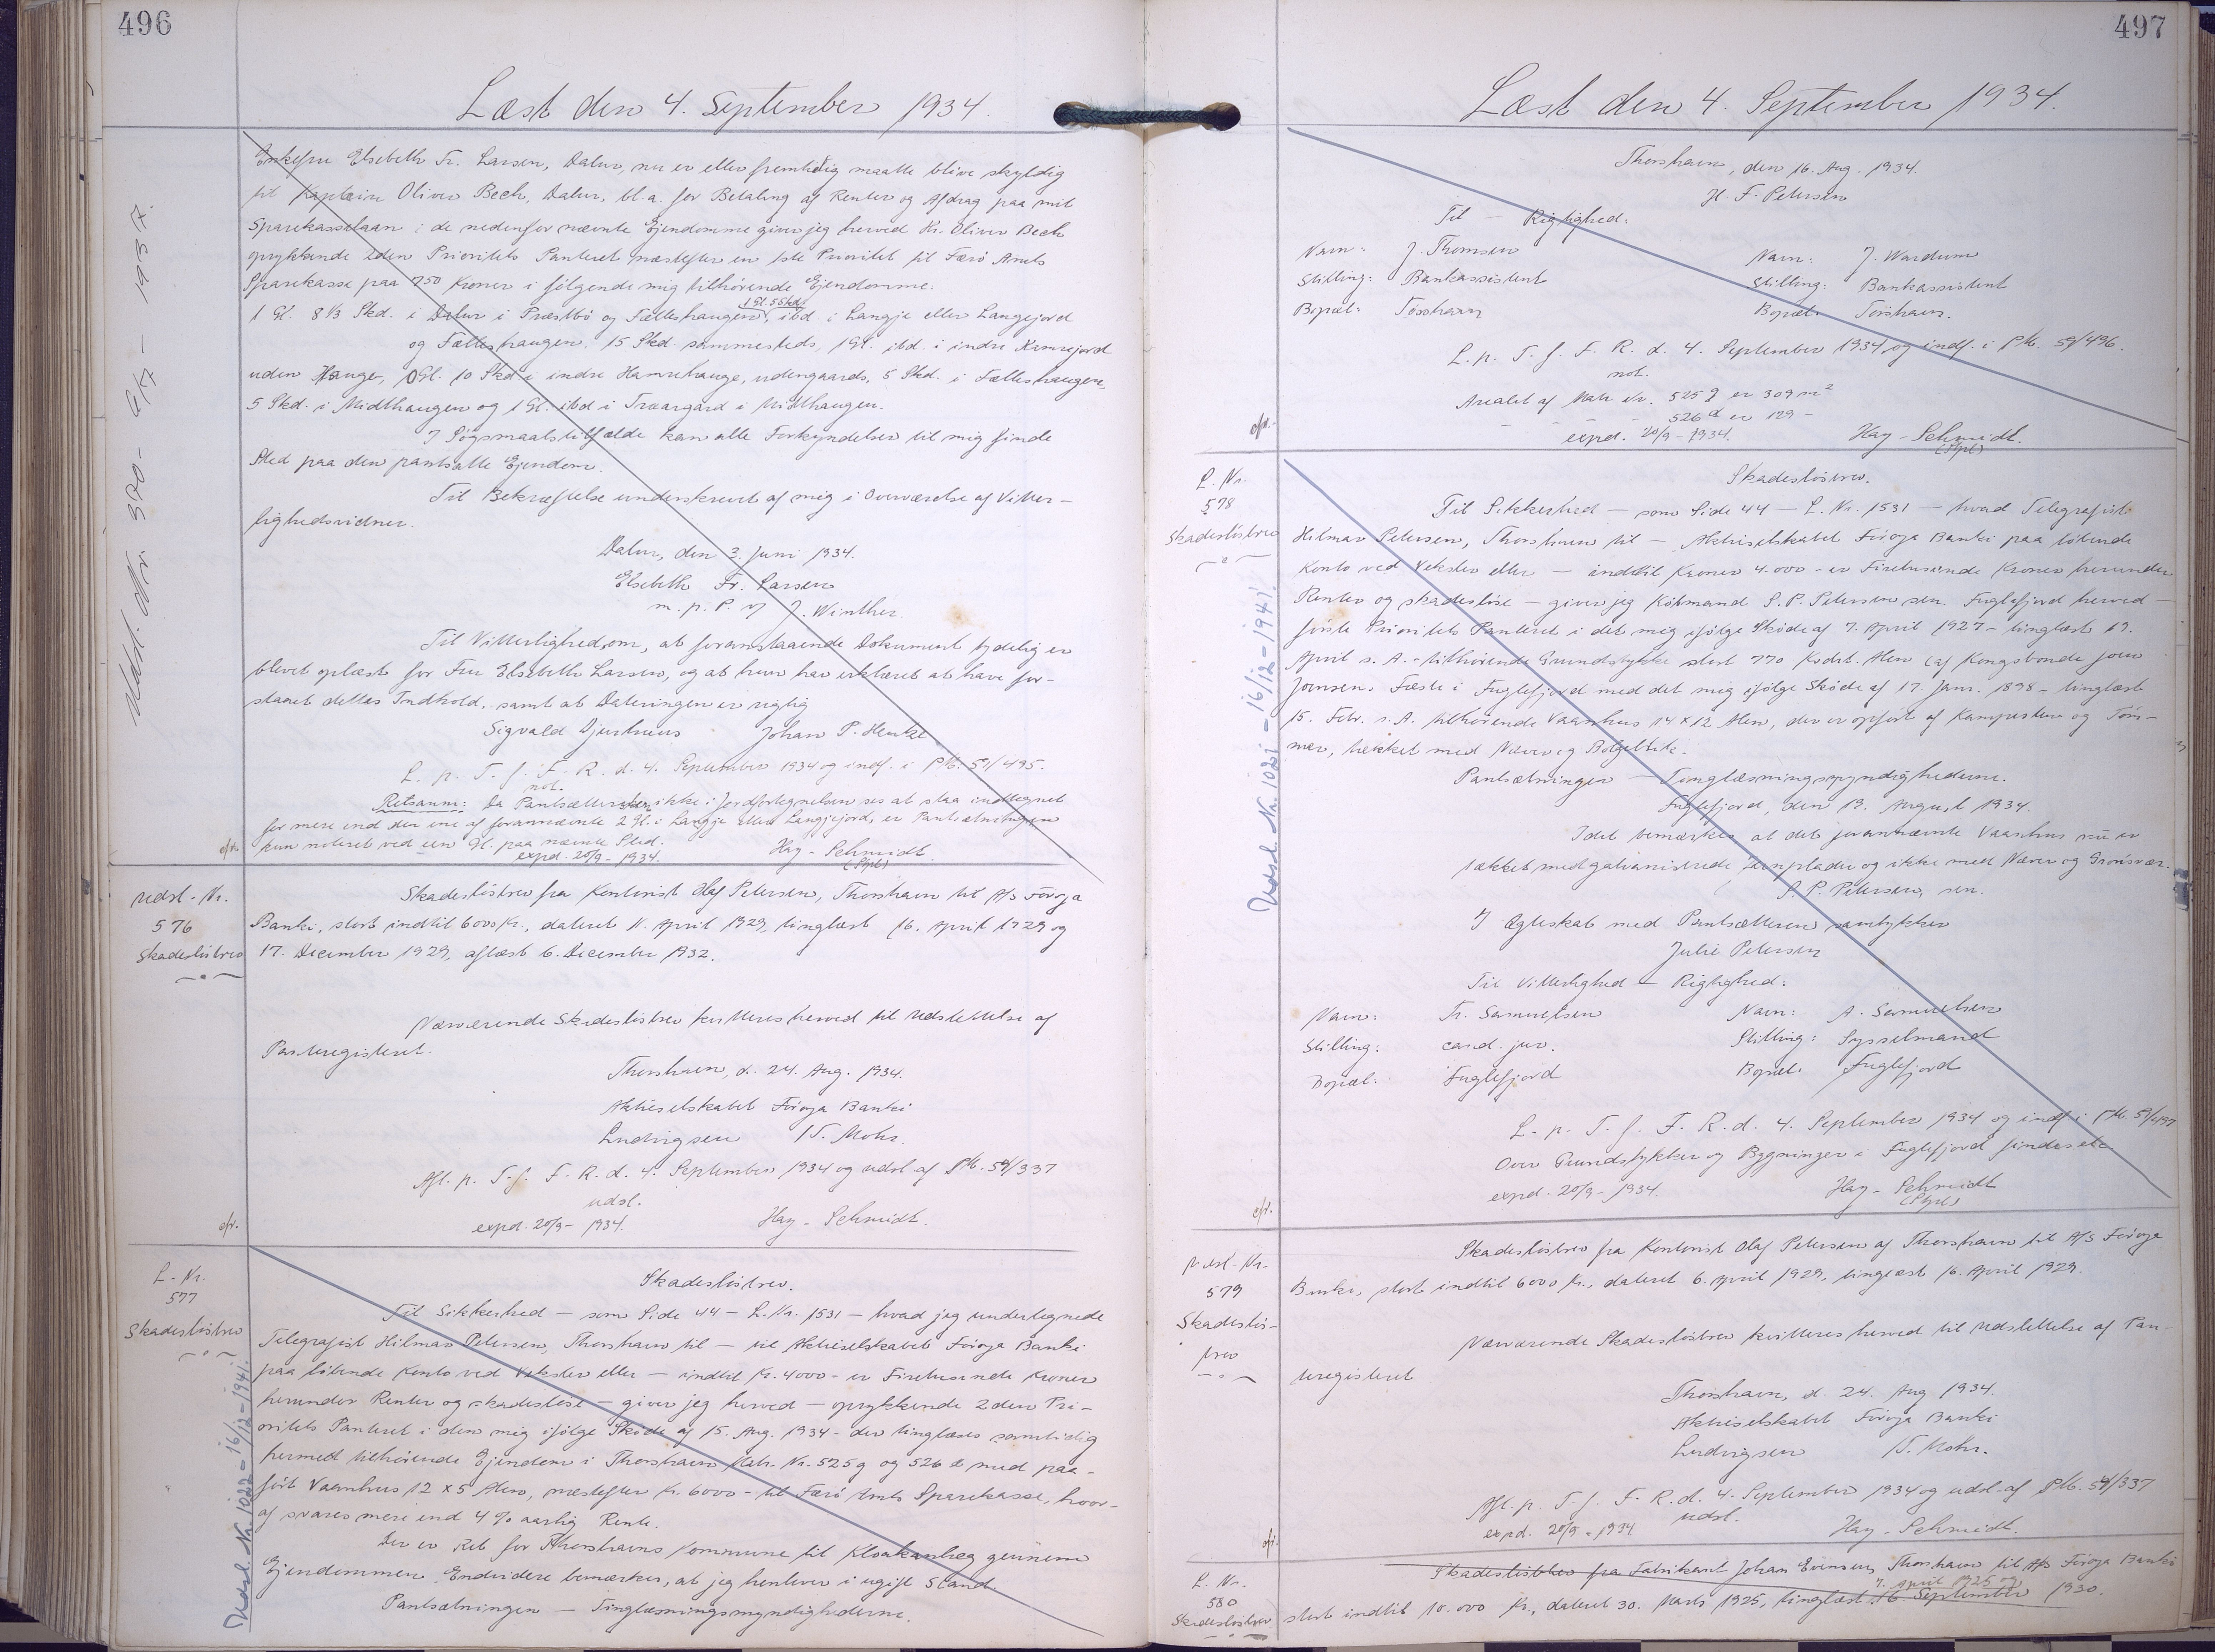 496
Læst den 4. September 1934.
Enkefru Elsebeth Fr. Larsen, Dalur, nu er eller fremtidig maatte blive skyldig
til Kaptain Oliver Bech, Dalur, bl.a. for Betaling af Renter og Afdrag paa mit
Sparekasselaan i de nedenfor nævnte Ejendomme giver jeg herved Hr. Oliver Bech
oprykkende 2den Prioritets Panteret næstefter en 1ste Prioritet til Færø Amts
Sparekasse paa 750 Kroner i følgende mig tilhørende Ejendomme:
1 Gl. 5 Skd.
1 Gl. 8 1/3 Skd. i Dalur i Præstbø og Fælleshaugen, ibd. i Langje eller Langejord
og Fælleshaugen. 15 Skd. sammesteds, 1 Gl. ibd. i indre
uden Hauge, 0 Gl. 10 Skd. i indre Hamrehauge, udengaards, 5 Skd. i Fælleshaugen,
5 Skd. i Midlhaugen og 1 Gl. ibd i Træargard i Midlhaugen.
I Søgsmaalstilfælde kan alle Forkyndelser til mig finde
Sted paa den pantsatte Ejendom.
Til Bekræftelse underskrevet af mig i Overværelse af Vitter-
lighedsvidner.
Dalur, den 3. Juni 1934.
Elsebeth Fr. Larsen
m. p. P. v/ J. Winther.
Til Vitterlighed om, at foranstaaende Dokument tydelig er
blevet oplæst for Fru Elsebeth Larsen, og at hun har erklæret at have for-
staaet dettes Indhold, samt at Dateringen er rigtig
Sigvald Djurhuus Johan P. Hentze
L. p. T. f. F. R. d. 4. September 1934 og indf. i PM. 59/495.
not.
Retsanm: Da Pantsættersken ikke i Jordfortegnelsen ses at staa indtegnet
for mere end den ene af forannævnte 2 Gl. i Langje eller Langjejord, er Pantsætningen
kun noteret ved een Gl. paa nævnte Sted.
cfr. expd. 20/9 - 1934. Hay-Schmidt.
(Stpl)
Udsl. Nr. 570 - 6/7 - 1937.
Udsl. Nr.
576
Skadesløsbrev
Skadesløsbrev fra Kontorist Olaf Petersen, Thorshavn til A/S Føroja
Banki, stort indtil 6000 Kr., dateret 11. April 1929, tinglæst 16. April 1929 og
17. December 1929, aflæst 6. December 1932.
Nærværende Skadesløsbrev kvitteres herved til Udslettelse af
Panteregisteret.
Thorshavn, d. 24. Aug. 1934.
Aktieselskabet Føroja Banki
Ludvigsen /T. Mohr.
Afl. p. T. f. F. R. d. 4. September 1934 og udsl. af PM. 54/337
udsl.
cfr. expd. 20/9 - 1934. Hay-Schmidt.
L. Nr.
577
Skadesløsbrev
Udsl. Nr. 1022 - 16/12 - 1941.
Skadesløsbrev.
Til Sikkerhed – som Side 44 – L. Nr. 1531 – hvad jeg undertegnede
Telegrafist Hilmar Petersen, Thorshavn til – til Aktieselskabet Føroja Banki
paa løbende Konto ved Veksler eller – indtil Kr. 4000 - er Firetusinde Kroner
herunder Renter og skadesløst – giver jeg herved – oprykkende 2den Pri-
oritets Panteret i den mig ifølge Skøde af 15. Aug. 1934 - der tinglæses samtidig
hermed tilhørende Ejendom i Thorshavn Matr. Nr. 525 g og 526 d med paa-
ført Vaanhus 12 x 5 Alen, næstefter Kr. 6000 - til Færø Amts Sparekasse, hvor-
af svares mere end 4 % aarlig Rente.
Der er Ret for Thorshavns Kommune til Kloakanlæg gennem
Ejendommen. Endvidere bemærkes, at jeg henlever i ugift Stand.
Pantsætningen – Tinglæsningsmyndighederne.
497
Læst den 4. September 1934.
Thorshavn, den 16. Aug. 1934.
H. F. Petersen
Til – Rigtighed:
Navn: J. Thomsen Navn: J. Wardum
Stilling: Bankassistent Stilling: Bankassistent
Bopæl: Torshavn Bopæl: Torshavn.
L. p. T. f. F. R. d. 4. September 1934 og indf. i PM. 59/496.
not.
Arealet af Matr. Nr. 525 g er 309 m²
- - - 526 d er 129 -
cfr. expd. 20/9 - 1934. Hay-Schmidt.
(Stpl)
L. Nr.
578
Skadesløsbrev
Udsl. Nr. 1021 - 16/12 - 1941.
Skadesløsbrev.
Til Sikkerhed – som Side 44 – L. Nr. 1531 – hvad Telegrafist
Hilmar Petersen, Thorshavn til – Aktieselskabet Føroja Banki paa løbende
Konto ved Veksler eller – indtil Kroner 4.000 - er Firetusinde Kroner herunder
Renter og skadesløse – giver jeg Købmand S. P. Petersen sen. Fuglefjord herved –
første Prioritets Panteret i det mig ifølge Skøde af 7. April 1927 - tinglæst 19.
April s. A. - tilhørende Grundstykke stort 770 Kvdrt. Alen (af Kongsbonde Joen
Joensens Fæste i Fuglefjord med det mig ifølge Skøde af 17. Janr. 1898 - tinglæst
15. Febr. s. A. tilhørende Vaanhus 14 x 12 Alen, der er opført af Kampesten og Tøm-
mer, tækket med Næver og
Pantsætningen – Tinglæsningsmyndighederne.
Fuglefjord, den 13. August 1934.
Idet bemærkes at det forannævnte Vaanhus nu er
tækket med galvaniserede Jernplader og ikke med Næver og Grønsvær.
S. P. Petersen, sen.
I Ægteskab med Pantsætteren samtykker
Julie Petersen
Til Vitterlighed – Rigtighed:
Navn: Fr. Samuelsen Navn: A. Samuelsen
Stilling: cand. jur. Stilling: Sysselmand
Bopæl: Fuglefjord Bopæl: Fuglefjord
L. p. T. f. F. R. d. 4. September 1934 og indf. i PM. 59/497
Over Grundstykker og Bygninger i Fuglefjord findes
expd. 20/9 - 1934. Hay-Schmidt
cfr. (Stpl)
Udsl. Nr.
579
Skadesløs-
brev
Skadesløsbrev fra Kontorist Olaf Petersen af Thorshavn til A/S Føroja
Banki, stort indtil 6000 Kr., dateret 6. April 1929, tinglæst 16. April 1929.
Nærværende Skadesløsbrev kvitteres herved til Udslettelse af Pan-
teregisteret
Thorshavn, d. 24. Aug 1934.
Aktieselskabet Føroja Banki
Ludvigsen /T. Mohr.
Afl. p. T. f. F. R. d. 4. September 1934 og udsl. af PM. 54/337
udsl.
cfr. expd. 20/9 - 1934 Hay-Schmidt.
L. Nr.
580
Skadesløsbrev
Skadesløsbrev fra Fabrikant Johan Evensen, Thorshavn til A/S Føroja Banki
7. April 1925 og
stort indtil 10.000 Kr., dateret 30. Marts 1925, tinglæst 16. September 1930.